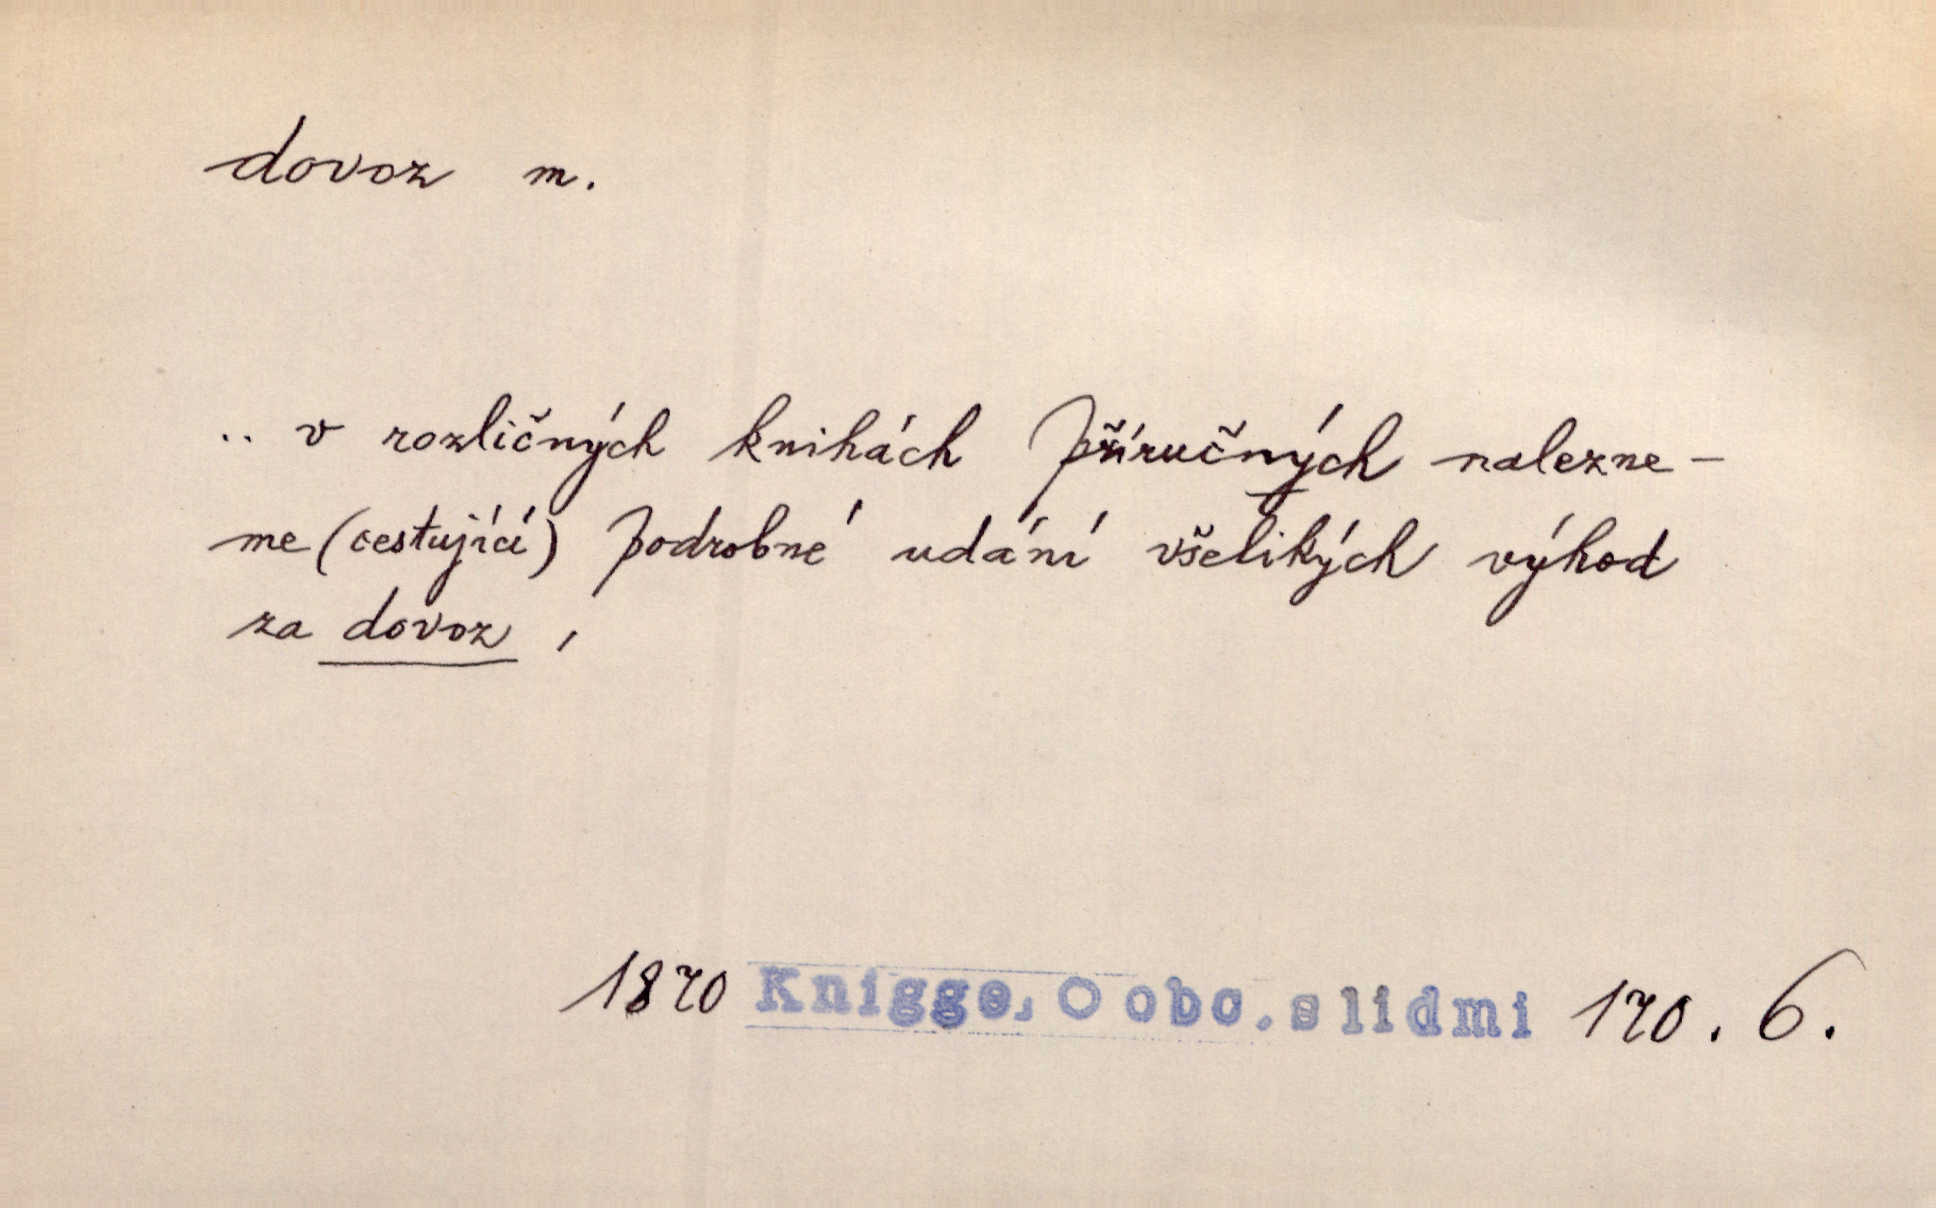 dovoz m.
.. v rozličných knihách příručných nalezne-
me (cestující) podrobné udání všelikých výhod
za dovoz,
1870 Knigge, O obc. s lidmi 170. 6.